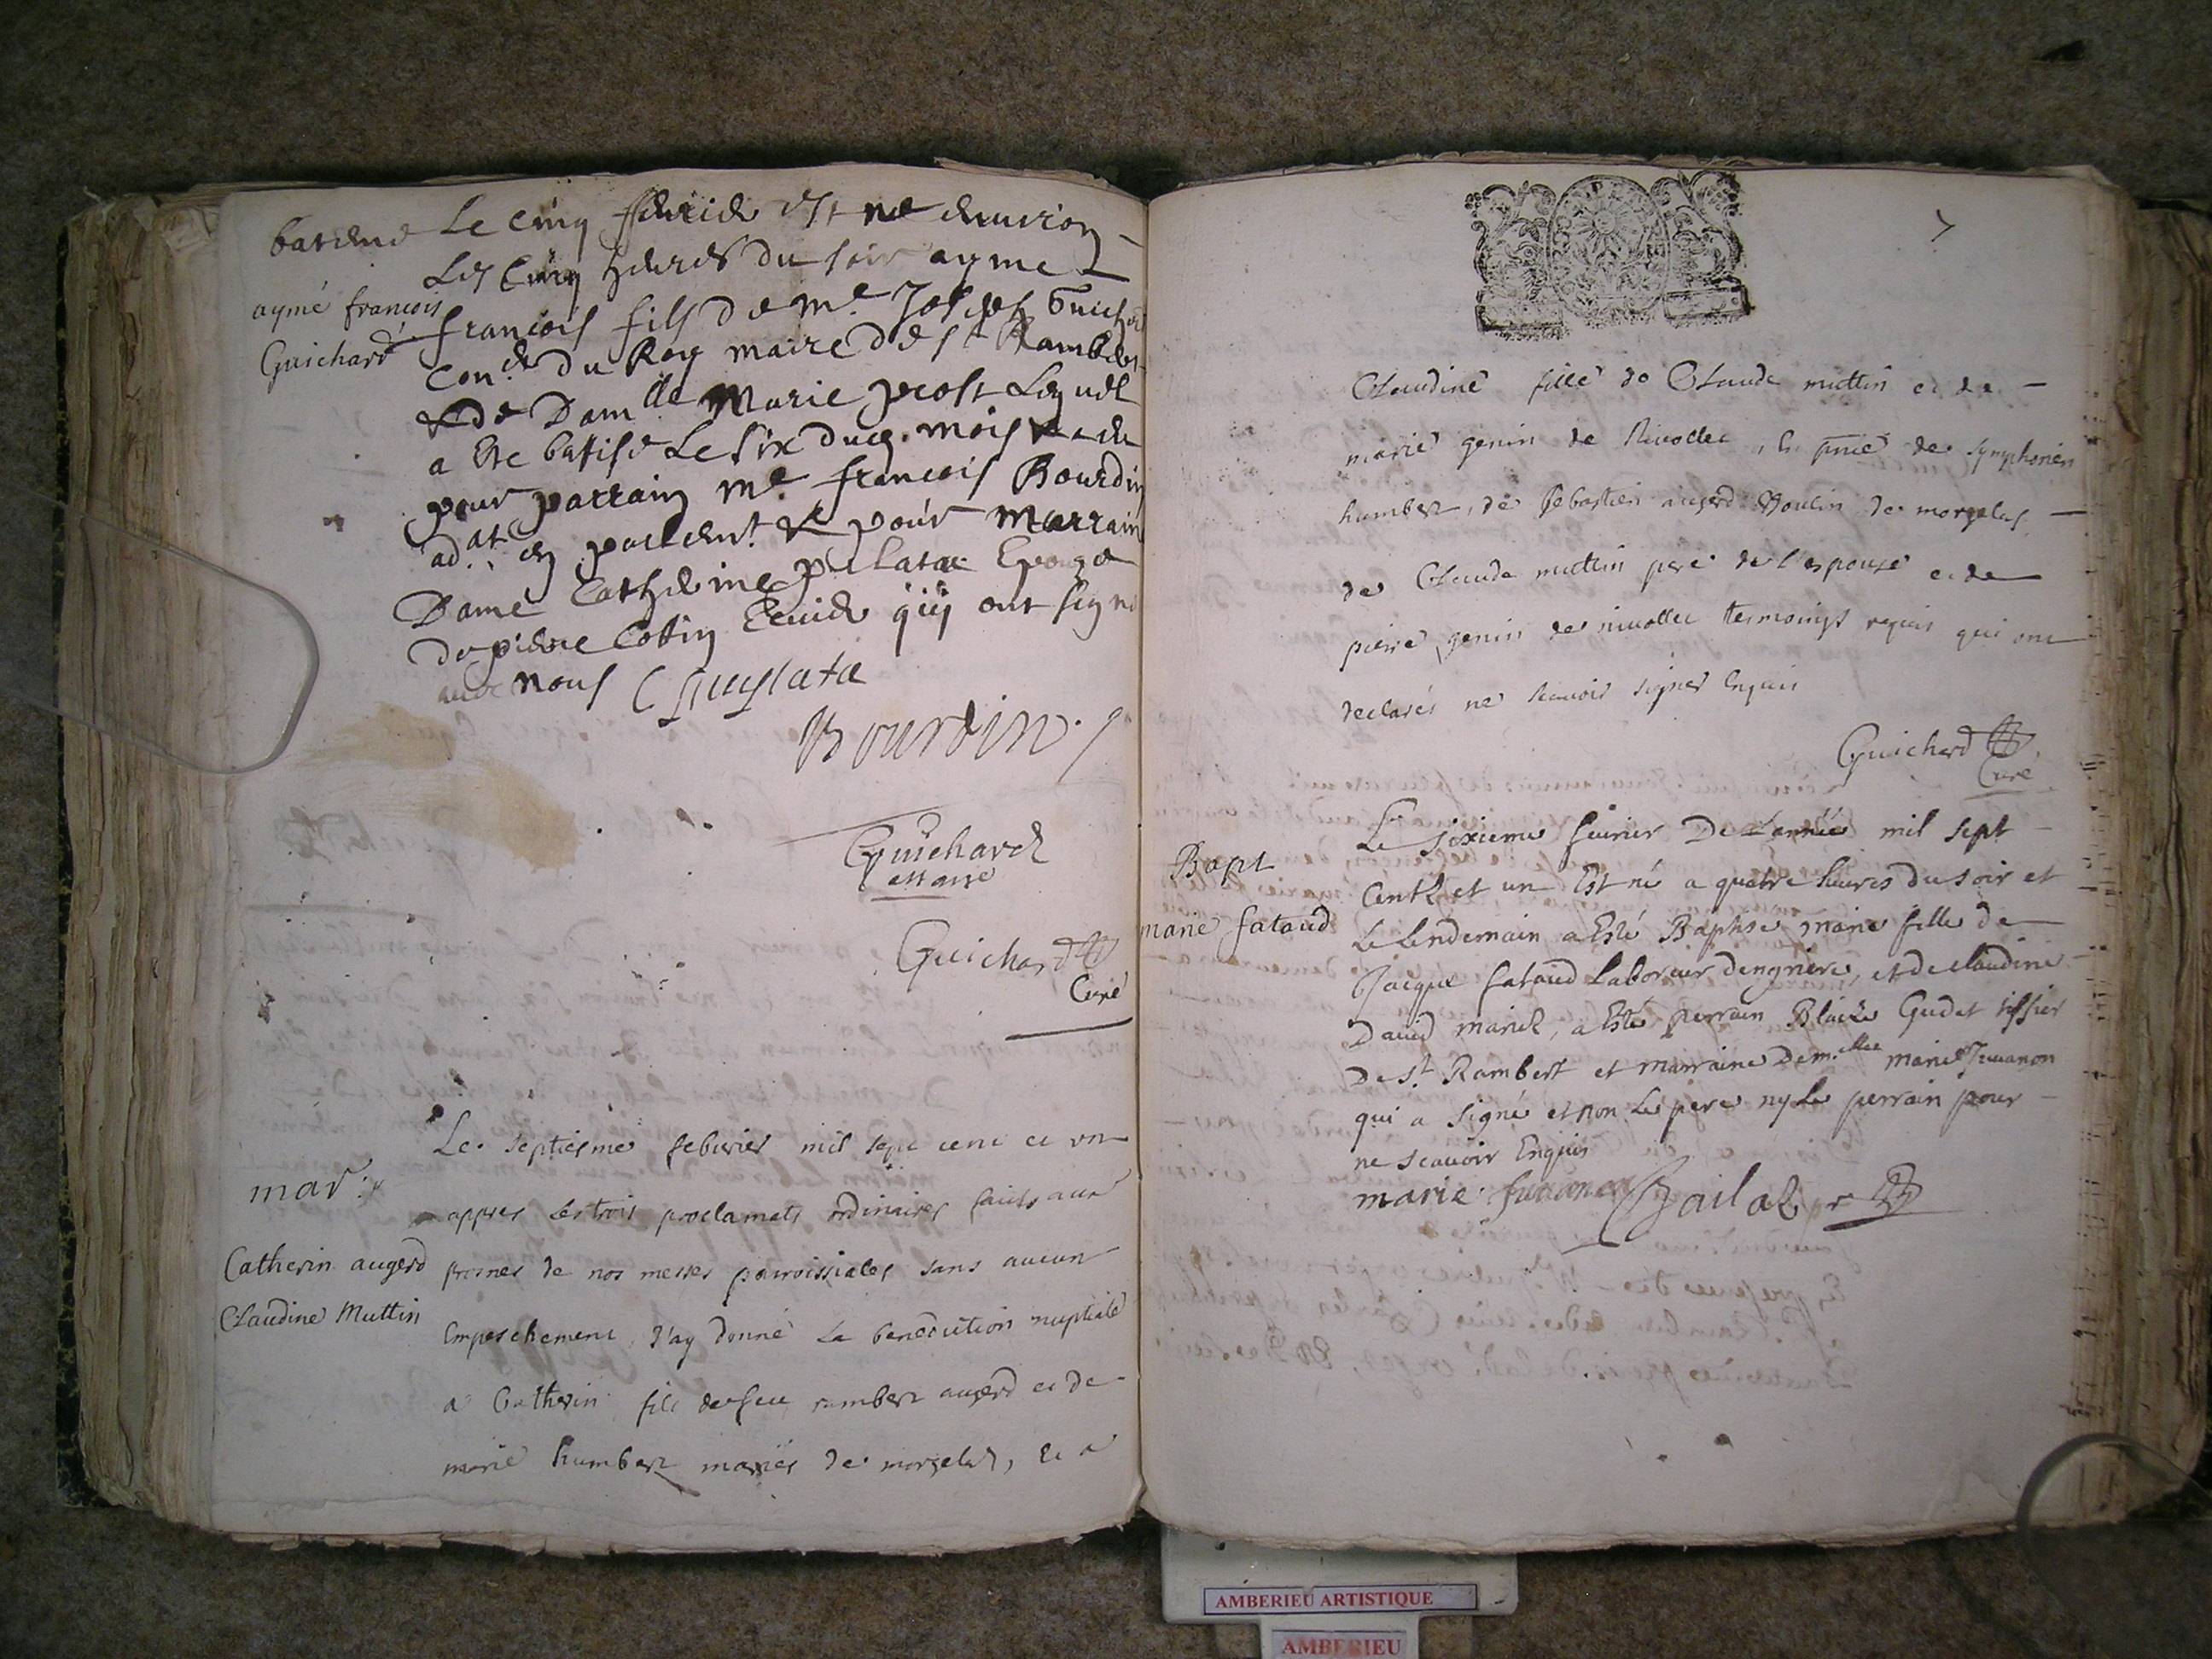 bateme Le cinq febvrier est ne environ
Les cinq heures du soir aymé
aymé françois
Guichard
françois fils de me. Joseph Guichard
Con.er du Roy maire de St Rambert
& de Damlle Marie prost Lequel
a ete batisé Le six dud. mois & a eu
pour parrain me. françois Bourdin
ad.at en parlem.t & pour Marraine
Dame Catherine pelata Epouze
de pierre Cottin Ecuier qui ont signé
avec nous C pelata
Bourdin
Guichard
Guichard
Curé
Le septiesme febvrier mil sept cent et un
mar.
appres les trois proclamats ordinaires faits aux
Catherin augerd
prosnes de nos messes parroissiales sans aucun
Claudine Muttin
Empeschement, J'ay donné la benediction nuptiale
a Catherin fils de feu rambert augerd et de
marie humbert mariés de morgelas, et a
7
Claudine fille de Claude muttin et de
marie genin de Nivollet, En pnce de symphorien
humbert, de sebastien augerd Moulin de morgelas
de Claude muttin pere de l'espouse et de
pierre genin de nivollet tesmoings requis qui ont
declarés ne scavoir signer Enquis
Guichard
Curé
Le sixieme fevrier De L'année mil sept
Bapt
Cents et un Est né a quatre heures du soir et
marie fataud
Le Lendemain a Esté Baptise marie fille de
Jacque fataud Laboreur dengriere, et de claudine
David mariés, a Esté perrain Blaise Gudet tissier
De St. Rambert et marraine Dem.elle marie Juvanon
qui a signé et non Le pere ny Le perrain pour
ne scavoir Enquis
marie Juvanon Bailat
AMBERIEU ARTISTIQUE
AMBERIEU